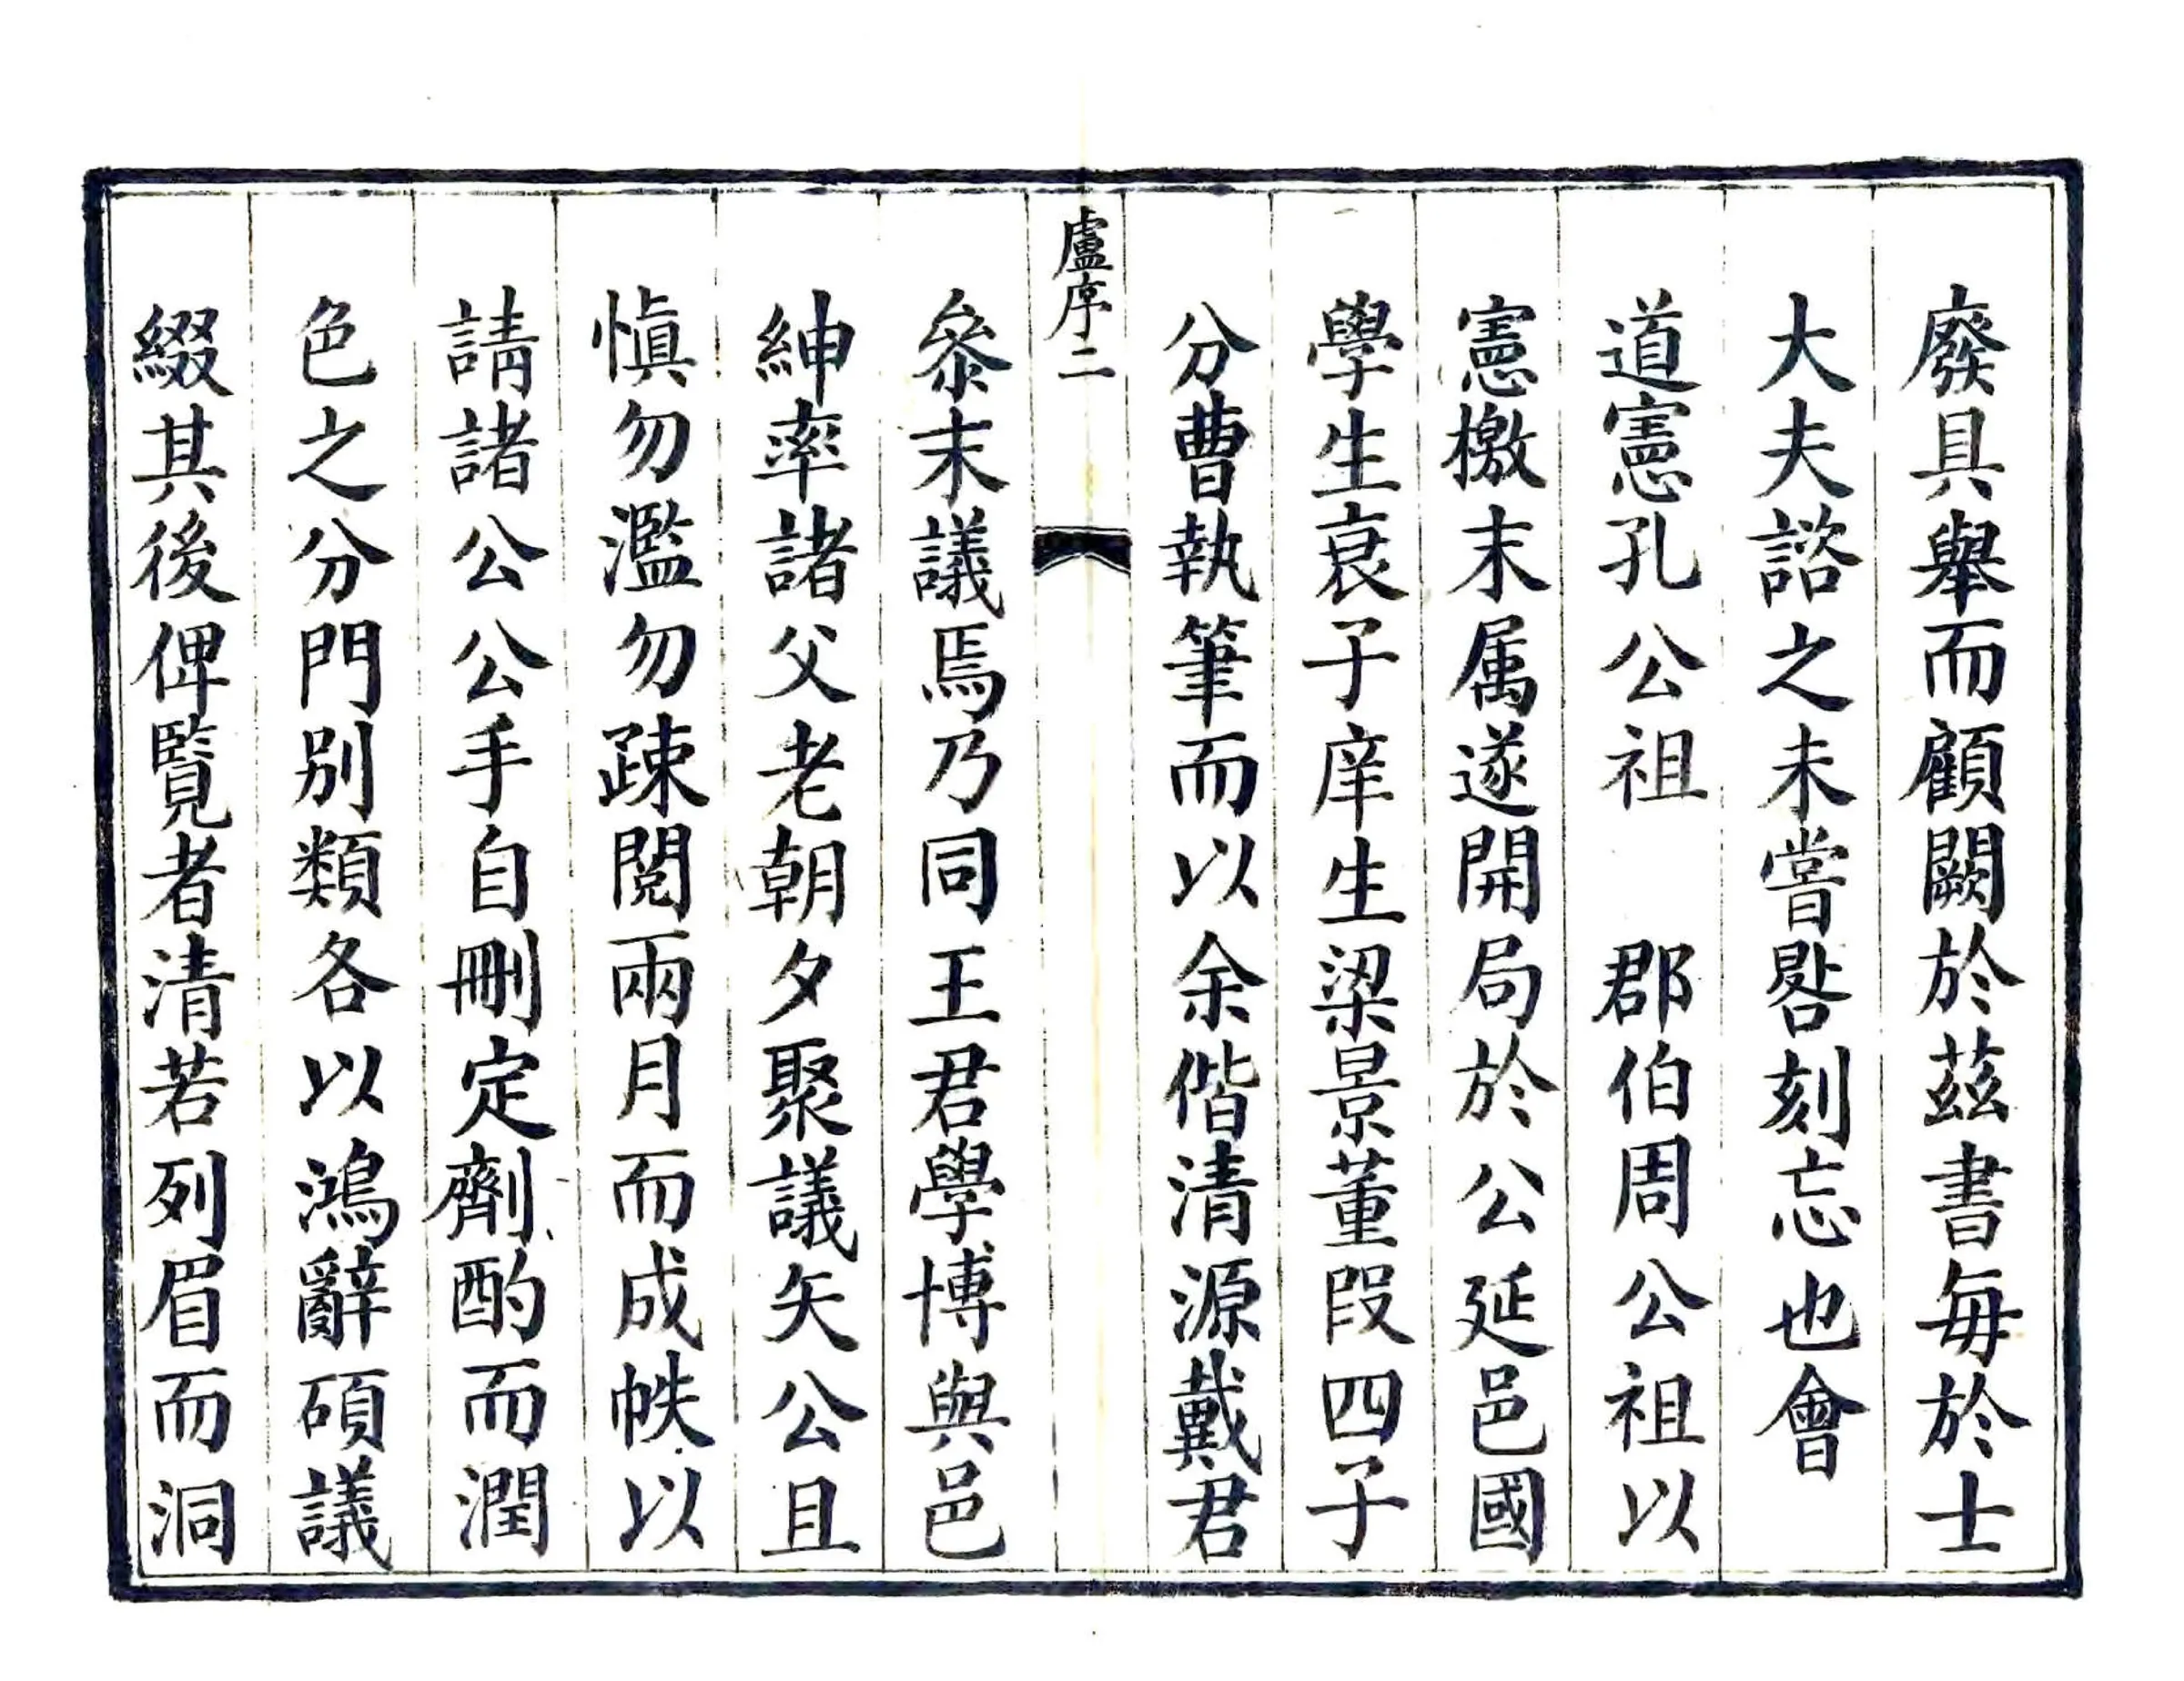 廢具舉而顧闕於茲書每於士
大夫諮之未嘗晷刻忘也會
道憲孔公祖　郡伯周公祖以
憲檄末属遂開局於公延邑國
學生袁子庠生梁景董段四子
分曹執筆而以余偕清源戴君
盧序二
叅末議焉乃同王君學博與邑
紳率諸父老朝夕聚議矢公且
慎勿濫勿疎閱兩月而成帙以
請諸公公手自刪定劑酌而潤
色之分門别類各以鴻辭碩議
綴其後俾覧者清若列眉而洞